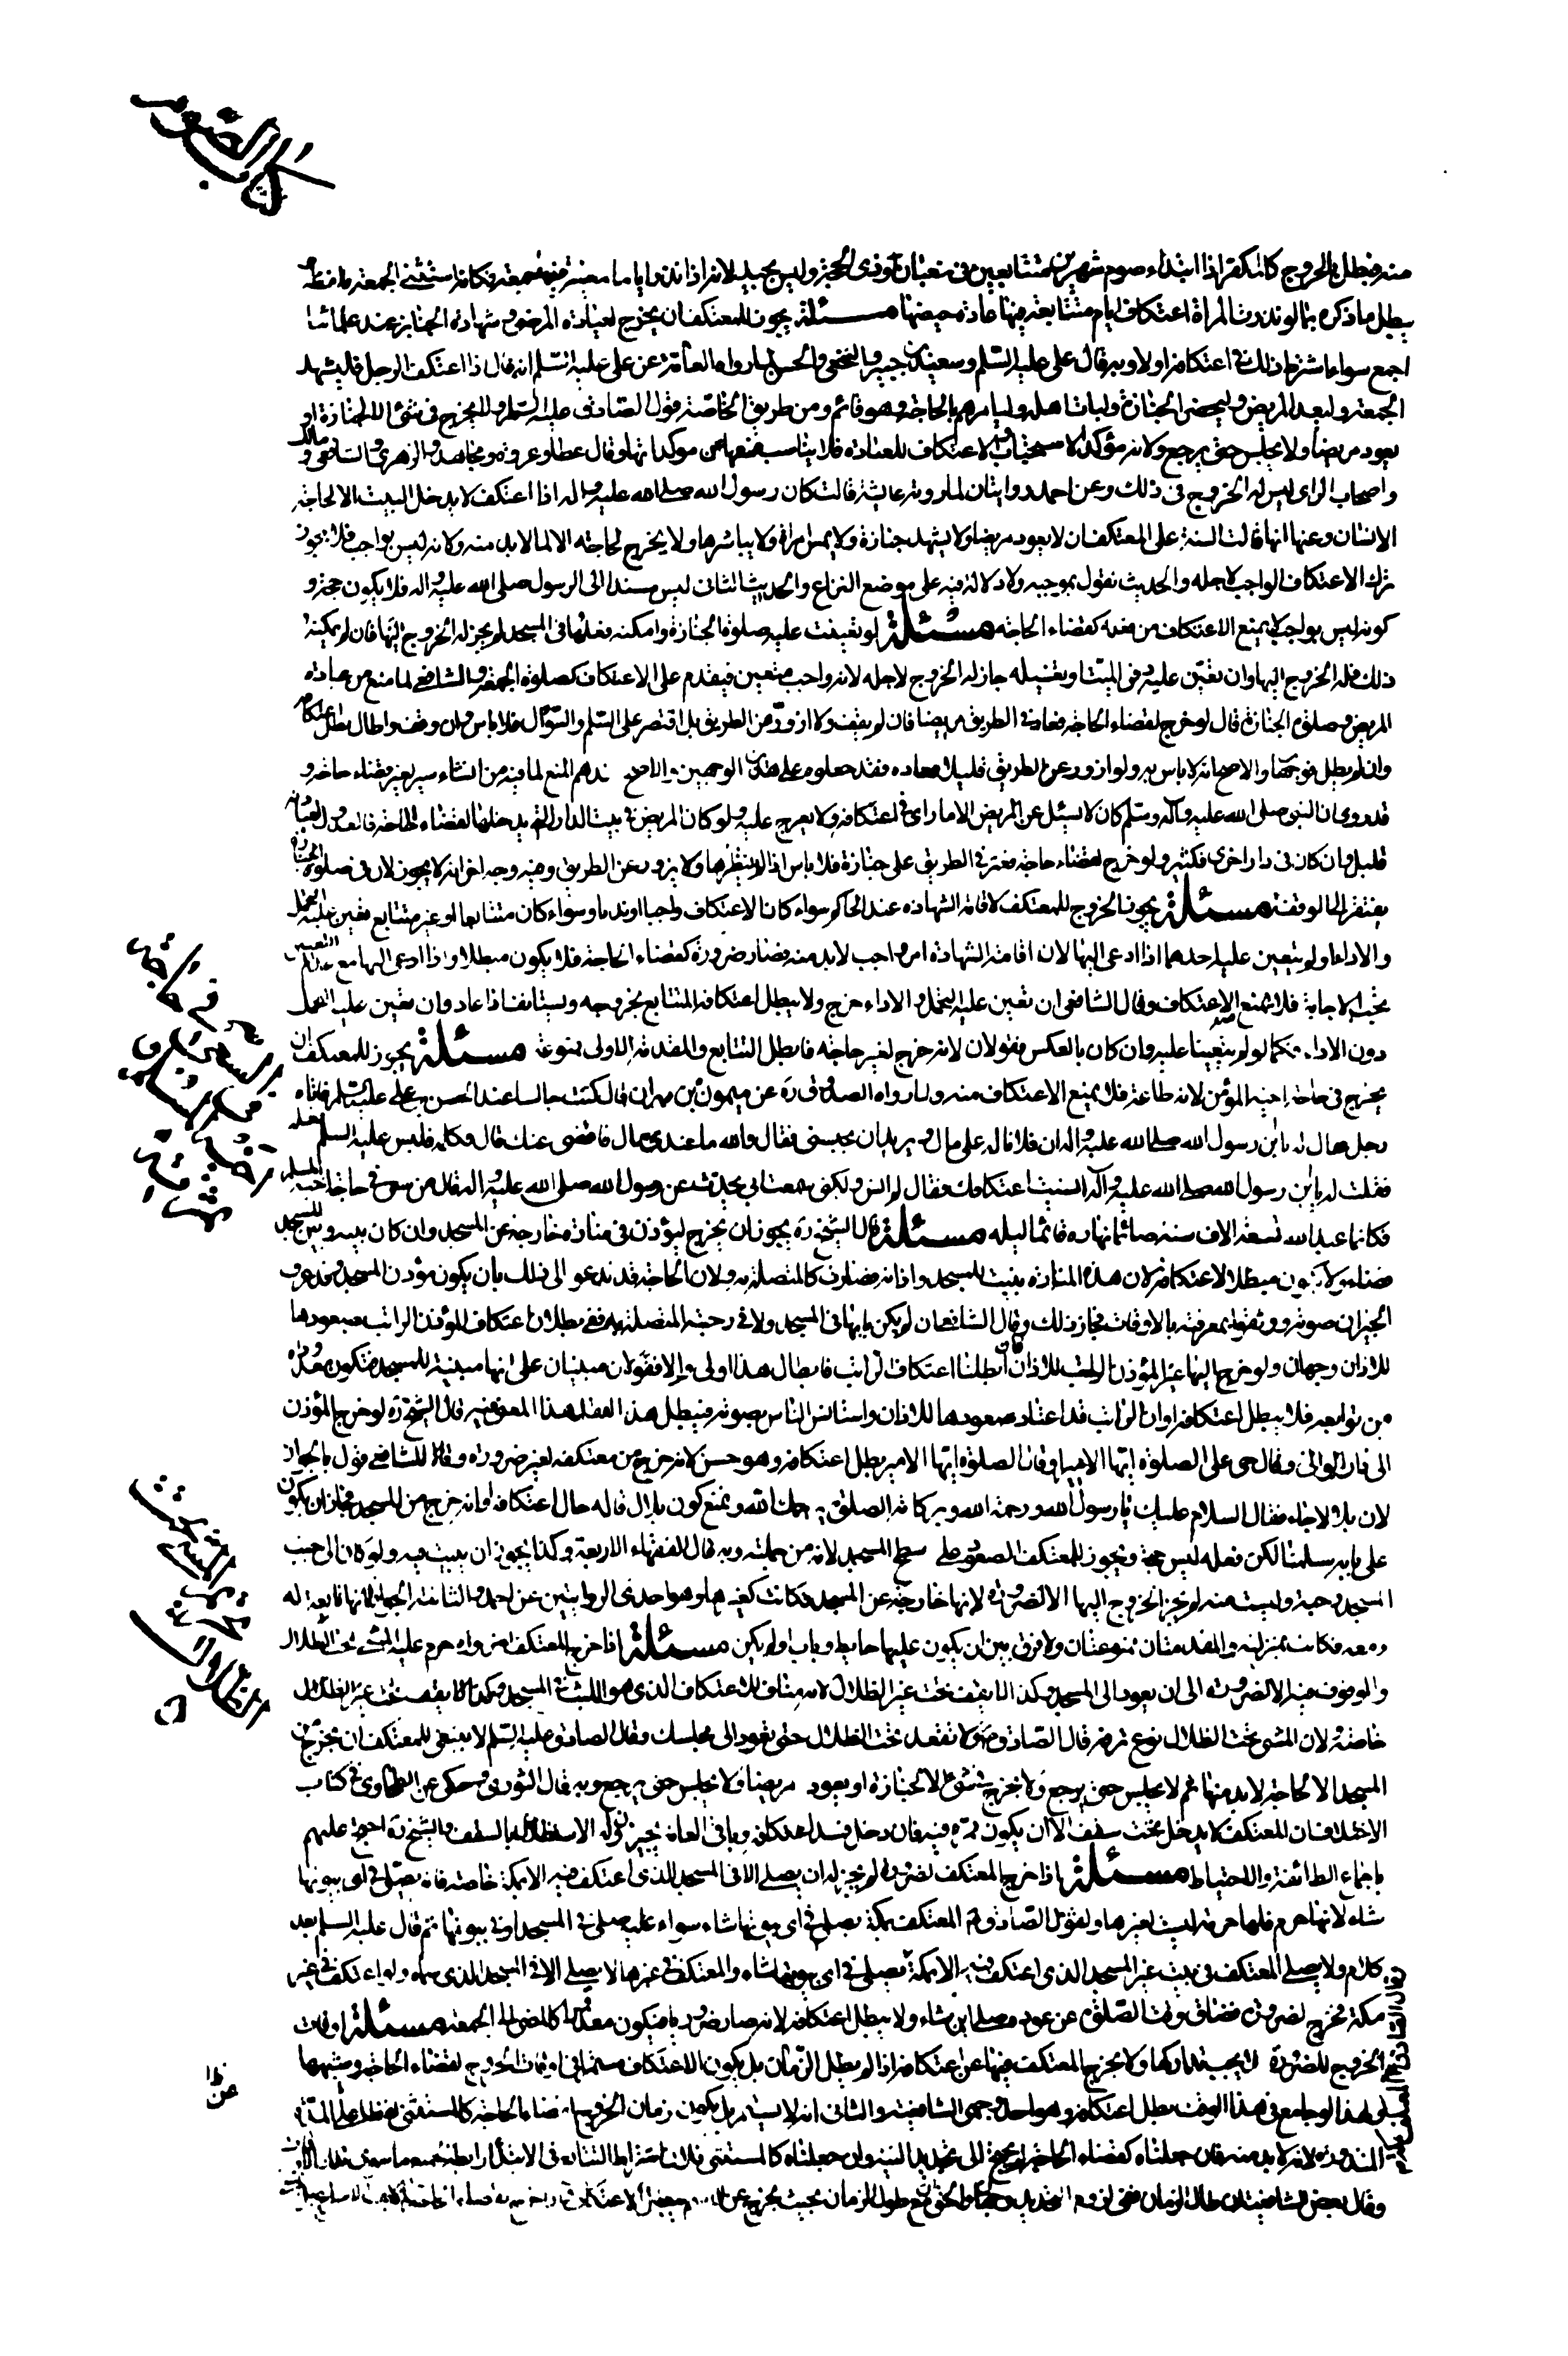 كتاب الصوم
منه فيبطل بالخروج كالمكفر اذا ابتداء صوم شهرين متتابعين في شعبان او ذي الحجة وليس بجيد لانه اذا نذر اياما معينة فيها جمعة فكانه استثنى الجمعة بلفظه
يبطل ما ذكره بما لو نذرت المراة اعتكاف ايام متتابعة فيها عادة حيضها مسئلة يجوز للمعتكف ان يخرج لعيادة المرضى وشهادة الجنايز عند علمائنا
اجمع سواء اشترط ذلك في اعتكافه او لا وبه قال علي عليه السلم وسعيد بن جبير والنخعي والحسن لما رواه العامة عن علي عليه السلم انه قال اذا اعتكف الرجل فليشهد
الجمعة وليعد المريض وليحضر الجنازة وليات اهله وليامرهم بالحاجة وهو قائم ومن طريق الخاصة قول الصادق عليه السلم ولا يخرج في شئ الا لجنازة او
يعود مريضا ولا يجلس حتى يرجع ولانه مؤكد الاستحباب والاعتكاف للعبادة فلا يناسب منعها من موكداتها وقال عطا وعروة ومجاهد والزهري والشافعي ومالك
واصحاب الراي ليس له الخروج في ذلك وعن احمد روايتان لما روته عايشة قالت كان رسول الله صلى الله عليه واله اذا اعتكف لا يدخل البيت الا لحاجة
الانسان وعنها انها قالت السنة على المعتكف ان لا يعود مريضا ولا يشهد جنازة ولا يمس امراة ولا يباشرها ولا يخرج لحاجته الا لما لا بد منه ولانه ليس بواجب فلا يجوز
ترك الاعتكاف الواجب لاجله والحديث نقول بموجبه ولا دلالة فيه على موضع النزاع والحديث الثاني ليس مسندا الى الرسول صلى الله عليه واله فلا يكون حجة و
كونه ليس بواجب لا يمنع الاعتكاف من فعله كقضاء الحاجة مسئلة لو تعينت عليه صلوة الجنازة وامكنه فعلها في المسجد لم يجز له الخروج اليها فان لم يمكنه
ذلك فله الخروج اليها وان تعين عليه دفن الميت او تغسيله جاز له الخروج لاجله لانه واجب متعين فيقدم على الاعتكاف كصلوة الجمعة والشافعي لما منع من عيادة
المريض وصلوة الجنازة قال لو خرج لقضاء الحاجة فعاد في الطريق مريضا فان لم يقف ولا ازور عن الطريق بل اقتصر على السلم والسؤال فلا باس وان وقف واطال بطل اعتكافه
وان لم يطل فوجهان والاصح انه لا باس به ولو ازور عن الطريق قليلا فعاده فقد جعلوه على هذين الوجهين والاصح عندهم المنع لما فيه من انشاء سير لغير قضاء حاجة و
قد روي ان النبي صلى الله عليه وآله وسلم كان لا يسئل عن المريض الا مارا في اعتكافه ولا يعرج عليه ولو كان المريض في بيت الدار التي يدخلها لقضاء الحاجة فالعدول لعيادته
قليل وان كان في دار اخرى فكثير ولو خرج لقضاء حاجة فعثر في الطريق على جنازة فلا باس اذا لم ينتظرها ولا يزور عن الطريق وفيه وجه اخر انه لا يجوز لان في صلوة الجنازة
يفتقر الى الوقفة مسئلة يجوز الخروج للمعتكف لاقامة الشهادة عند الحاكم سواء كان الاعتكاف واجبا او ندبا وسواء كان متتابعا او غير متتابع تعين عليه التحمل
والاداء او لم يتعين عليه احدهما اذا ادعى اليها لان اقامة الشهادة امر واجب لا بد منه فصار ضرورة كقضاء الحاجة فلا يكون مبطلا واذا ادعى اليها مع عدم التعيين
تجب الاجابة فلا يمنع الاعتكاف وقال الشافعي ان تعين عليه التحمل والاداء خرج ولا يبطل اعتكافه المتتابع بخروجه ويستانف اذا عاد وان تعين عليه التحمل
دون الاداء فكما لو لم يتعينا عليه وان كان بالعكس فقولان لانه خرج لغير حاجة فابطل التتابع والمقدمة الاولى ممنوعة مسئلة يجوز للمعتكف ان
يخرج في حاجة اخيه المؤمن لانه طاعة فلا يمنع الاعتكاف منه ولما رواه الصدوق ره عن ميمون بن مهران قال كنت جالسا عند الحسن بن علي عليه السلم فاتاه
رجل فقال له يا بن رسول الله صلى الله عليه واله ان فلانا له علي مال ويريد ان يحبسني فقال والله ما عندي مال فاقضي عنك قال فكلمه فلبس عليه السلم نعله
فقلت له يا بن رسول الله صلى الله عليه وآله انسيت اعتكافك فقال لم انس ولكني سمعت ابي يحدث عن رسول الله صلى الله عليه واله قال من سعى في حاجة اخيه المسلم
فكانما عبد الله تسعة الاف سنة صائما نهاره قائما ليله مسئلة قال الشيخ ره يجوز ان يخرج ليؤذن في منارة خارجة عن المسجد وان كان بينه وبين المسجد
فضاء ولا يكون مبطلا لاعتكافه لان هذه المنارة بنيت للمسجد واذانه فصارت كالمتصلة به ولان الحاجة قد تدعو الى ذلك بان يكون مؤذن المسجد وقد عرف
الجيران صوته ووثقوا بمعرفته بالاوقات فجاز ذلك وقال الشافعي ان لم يكن بابها في المسجد ولا في رحبته المتصلة به ففي بطلان اعتكاف المؤذن الراتب بصعودها
للاذان وجهان ولو خرج اليها غير المؤذن الراتب للاذان فان ابطلنا اعتكاف الراتب فابطال هذا اولى والا فقولان مبنيان على انها مبنية للمسجد فتكون معدودة
من توابعه فلا يبطل اعتكافه او ان الراتب قد اعتاد صعودها للاذان واستانس الناس بصوته فيبطل هذا لفقد هذا المعنى فيه قال الشيخ ره لو خرج المؤذن
الى دار الوالي وقال حي على الصلوة ايها الامير او قال الصلوة ايها الامير بطل اعتكافه وهو حسن لانه خرج من معتكفه لغير ضرورة وقال للشافعي قول بالجواز
لان بلالا جاء فقال السلام عليك يا رسول الله ورحمة الله وبركاته الصلوة يرحمك الله ونمنع كون بلال قاله حال اعتكافه او انه خرج من المسجد فجاز ان يكون
على بابه سلمنا لكن فعله ليس حجة ويجوز للمعتكف الصعود على سطح المسجد لانه من جملته وبه قال الفقهاء الاربعة وكذا يجوز ان يبيت فيه ولو كان الى جنب
المسجد رحبة وليست منه لم يجز الخروج اليها الا لضرورة لانها خارجة عن المسجد فكانت كغيرها وهو احدى الروايتين عن احمد والثانية الجواز لانها تابعة له
ومعه فكانت بمنزلته والمقدمتان ممنوعتان ولا فرق بين ان يكون عليها حايط وباب او لم يكن مسئلة اذا خرج المعتكف لضرورة حرم عليه المشي تحت الظلال
والوقوف فيه الا لضرورة الى ان يعود الى المسجد وكذا لا يقف تحت غير الظلال لانه مناف للاعتكاف الذي هو اللبث في المسجد
خاصة ولان المشي تحت الظلال نوع ترفه قال الصادق ع ولا تقعد تحت الظلال حتى تعود الى مجلسك وقال الصادق عليه السلم لا ينبغي للمعتكف ان يخرج من
المسجد الا لحاجة لا بد منها ثم لا يجلس حتى يرجع ولا يخرج في شئ الا لجنازة او يعود مريضا ولا يجلس حتى يرجع وبه قال الثوري وحكي عن الطحاوي في كتاب
الاختلاف ان المعتكف لا يدخل تحت سقف الا ان يكون ممره فيه فان دخل فسد اعتكافه وباقي العامة يجيز له الاستظلال بالسقف والشيخ ره احتج عليهم
باجماع الطائفة والاحتياط مسئلة اذا خرج المعتكف لضرورة لم يجز له ان يصلي الا في المسجد الذي اعتكف فيه الا بمكة خاصة فانه يصلي في اي بيوتها
شاء لانها حرم فلها حرمة ليست لغيرها ولقول الصادق ع المعتكف بمكة يصلي في اي بيوتها شاء سواء عليه صلى في المسجد او في بيوتها ثم قال عليه السلم بعد
كلام ولا يصلي المعتكف في بيت غير المسجد الذي اعتكف فيه الا بمكة يصلي في اي بيوتها شاء والمعتكف في غيرها لا يصلي الا في المسجد الذي سماه ولو اعتكف في غير
مكة فخرج لضرورة فضاق وقت الصلوة عن عوده صلى اين شاء ولا يبطل اعتكافه لانه صار ضروريا فيكون معذورا كالمضي الى الجمعة مسئلة اوقات
الخروج للضرورة لا يجب تداركها ولا يخرج المعتكف فيها عن اعتكافه اذا لم يطل الزمان بل يكون الاعتكاف مستمرا في اوقات الخروج لقضاء الحاجة وشبهها
ولهذا لو جامع في هذا الوقت بطل اعتكافه وهو احد وجهي الشافعية والثاني انه لا يستمر بل يكون زمان الخروج لقضاء الحاجة كالمستثنى لفظا عن المدة
المنذورة لانه لا بد منه فان جعلناه كقضاء الحاجة لم يحتج الى تجديد النية وان جعلناه كالمستثنى فلان اشتراط التتابع في الابتداء رابطة لجميع ما سوى تلك الاوقات
وقال بعض الشافعية ان طال الزمان ففي لزوم التجديد وجهان والحق مع طول الزمان بحيث يخرج عن
في حاجة